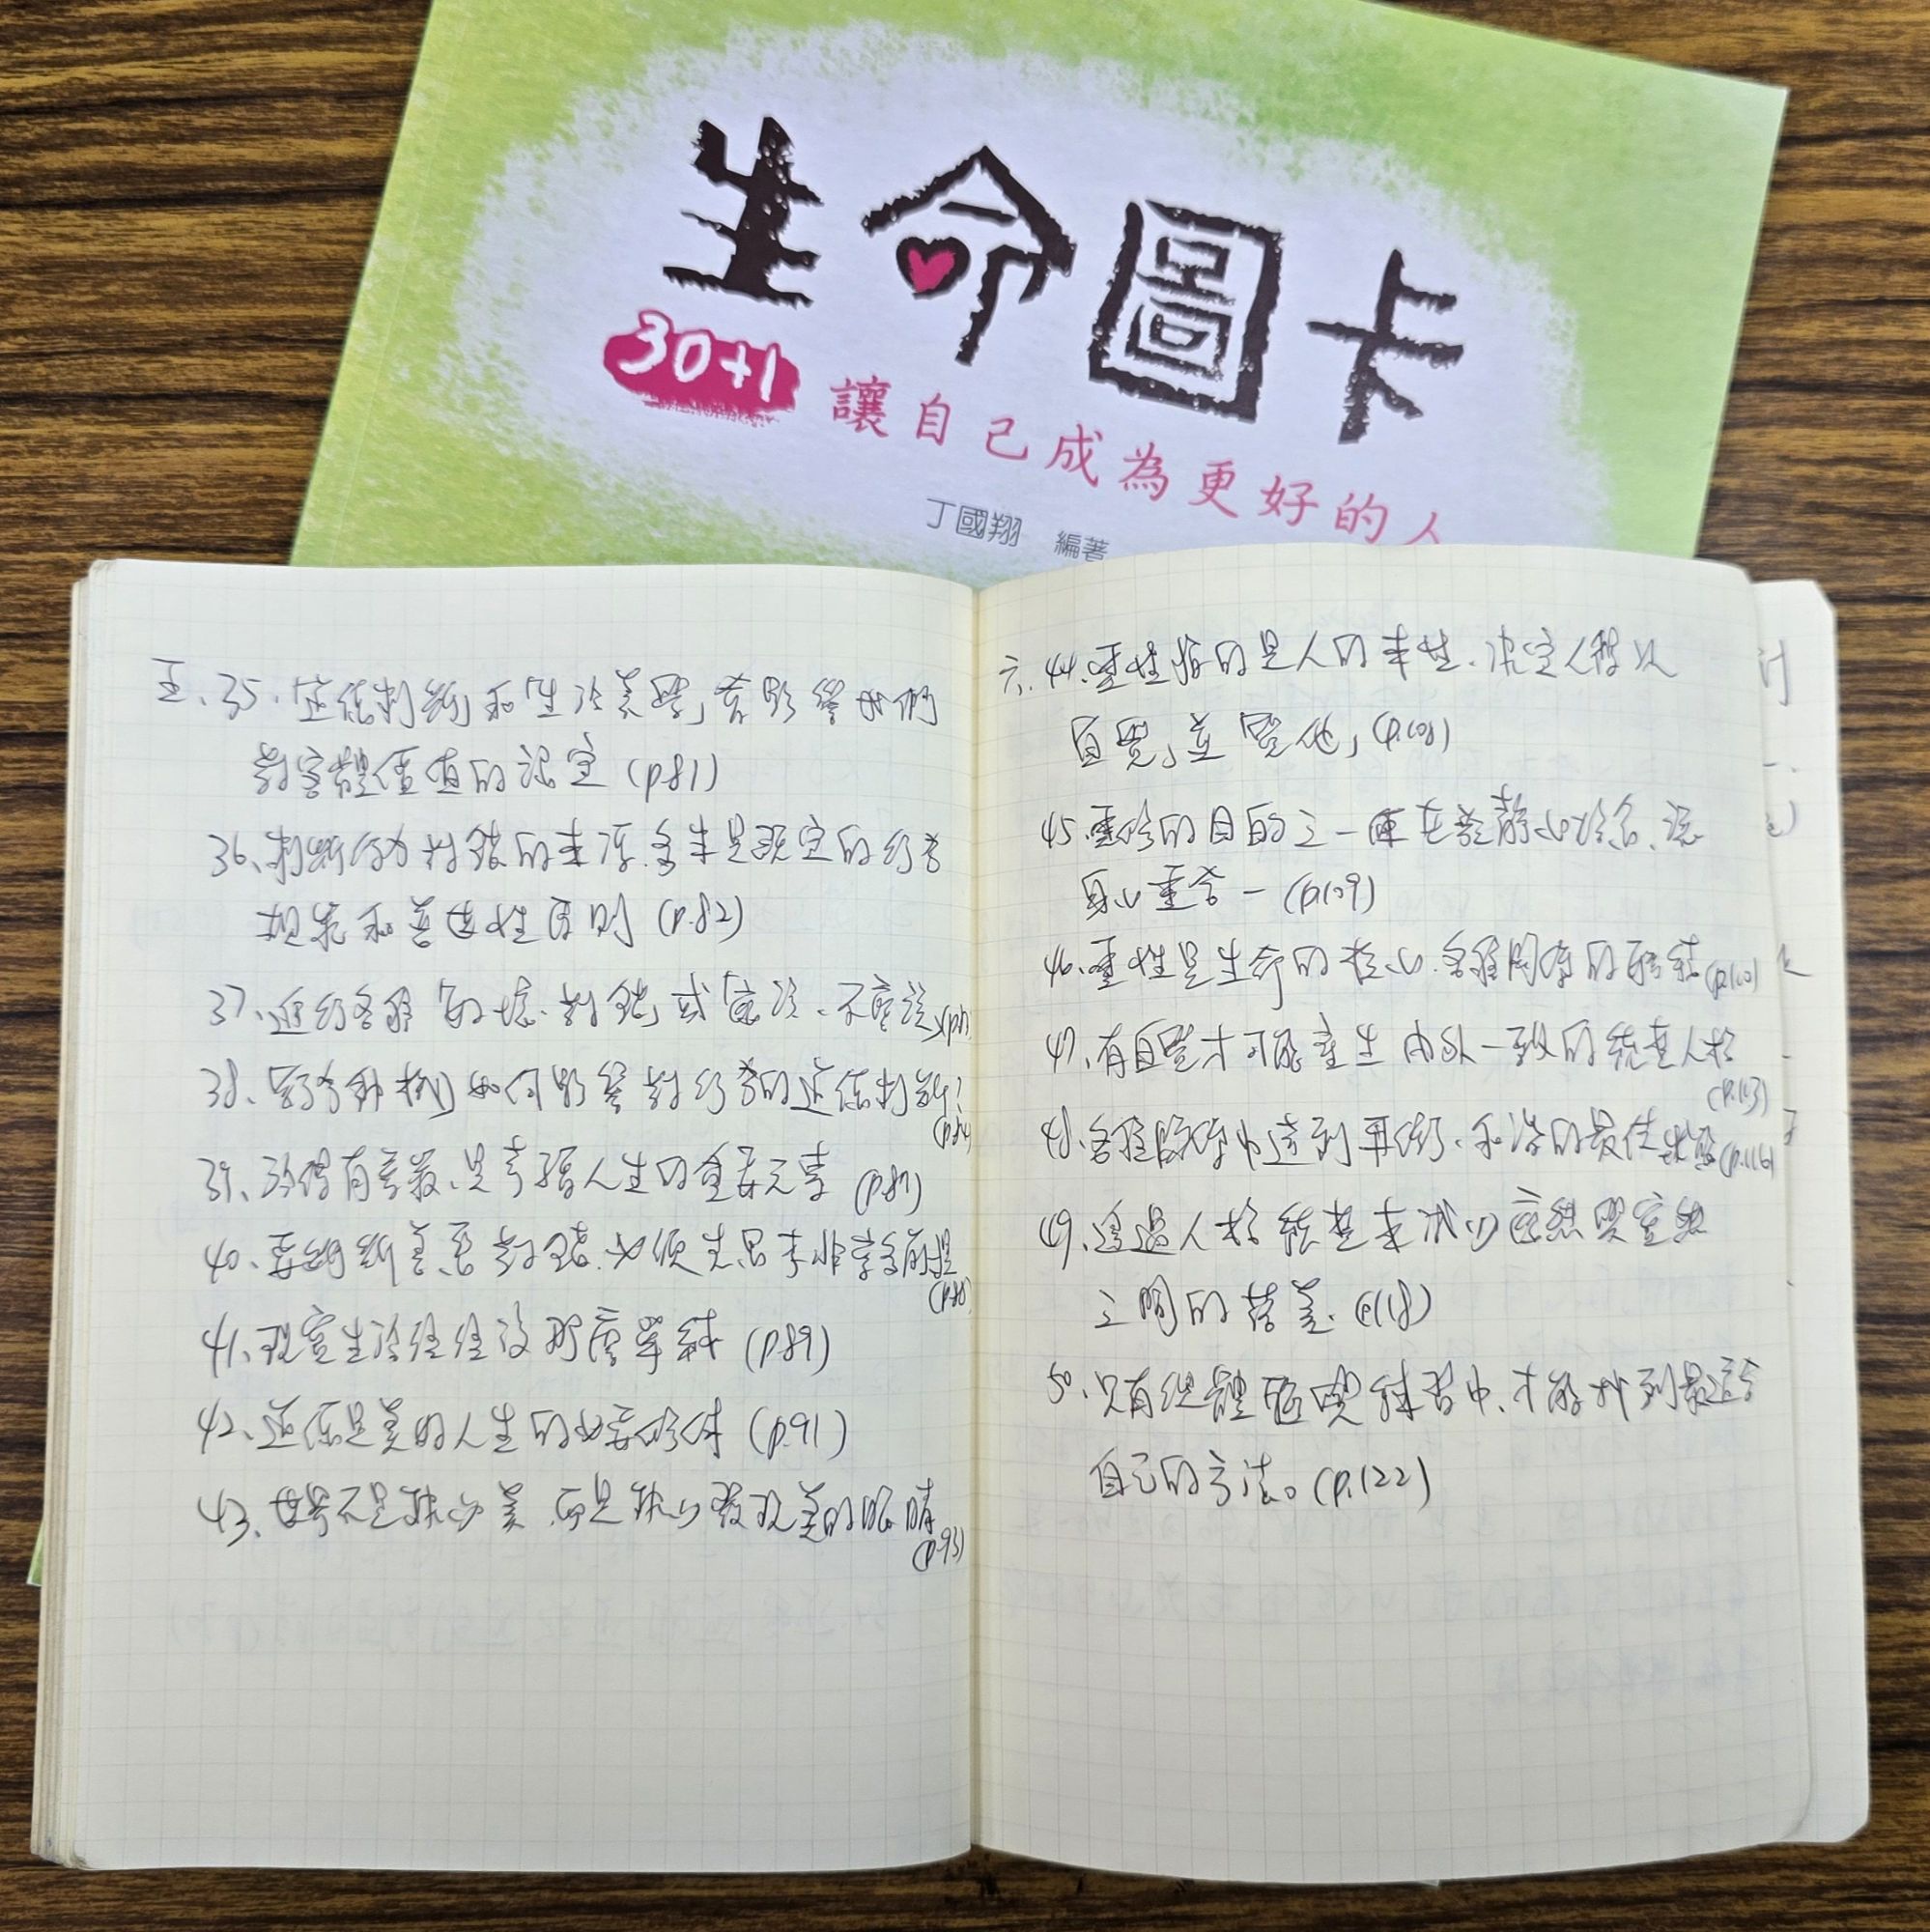 生命圖卡
30+1 讓自己成為更好的人
丁國翔 編著
五、35.「道德判斷」和「生活美學」旨影響我們
對客體價值的決定 (p.81)
36、判斷行為對錯的來源,多半是既定的行為
規範和普遍性原則 (p.82)
37、進行各種「好壞、對錯」或
38、「行為動機」如何影響對行為的道德判斷?
(p.84)
39、活得有意義、是幸福人生的重要元素 (p.87)
40、要判斷善惡對錯,必須先思考非常多前提
(p.88)
41、現實生活往往沒那麼單純 (p.89)
42、道德是美好人生的必要條件 (p.91)
43、世界不是缺少美,而是缺少發現美的眼睛
(p.93)
六、44、靈性指的是人的本性、決定人得以
「自覺」並「覺他」(p.108)
45、靈修的目的之一
身心重合一 (p.109)
46、靈性是生命的核心、各種關係的聯結 (p.110)
47、有自覺才可能產生內外一致的統整人格
(p.113)
48、各種關係中達到平衡、和諧的最佳狀態 (p.116)
49、透過人格統整來減少應然與實然
之間的落差. (p.118)
50、只有從體驗與練習中、才能找到最適合
自己的方法。(p.122)